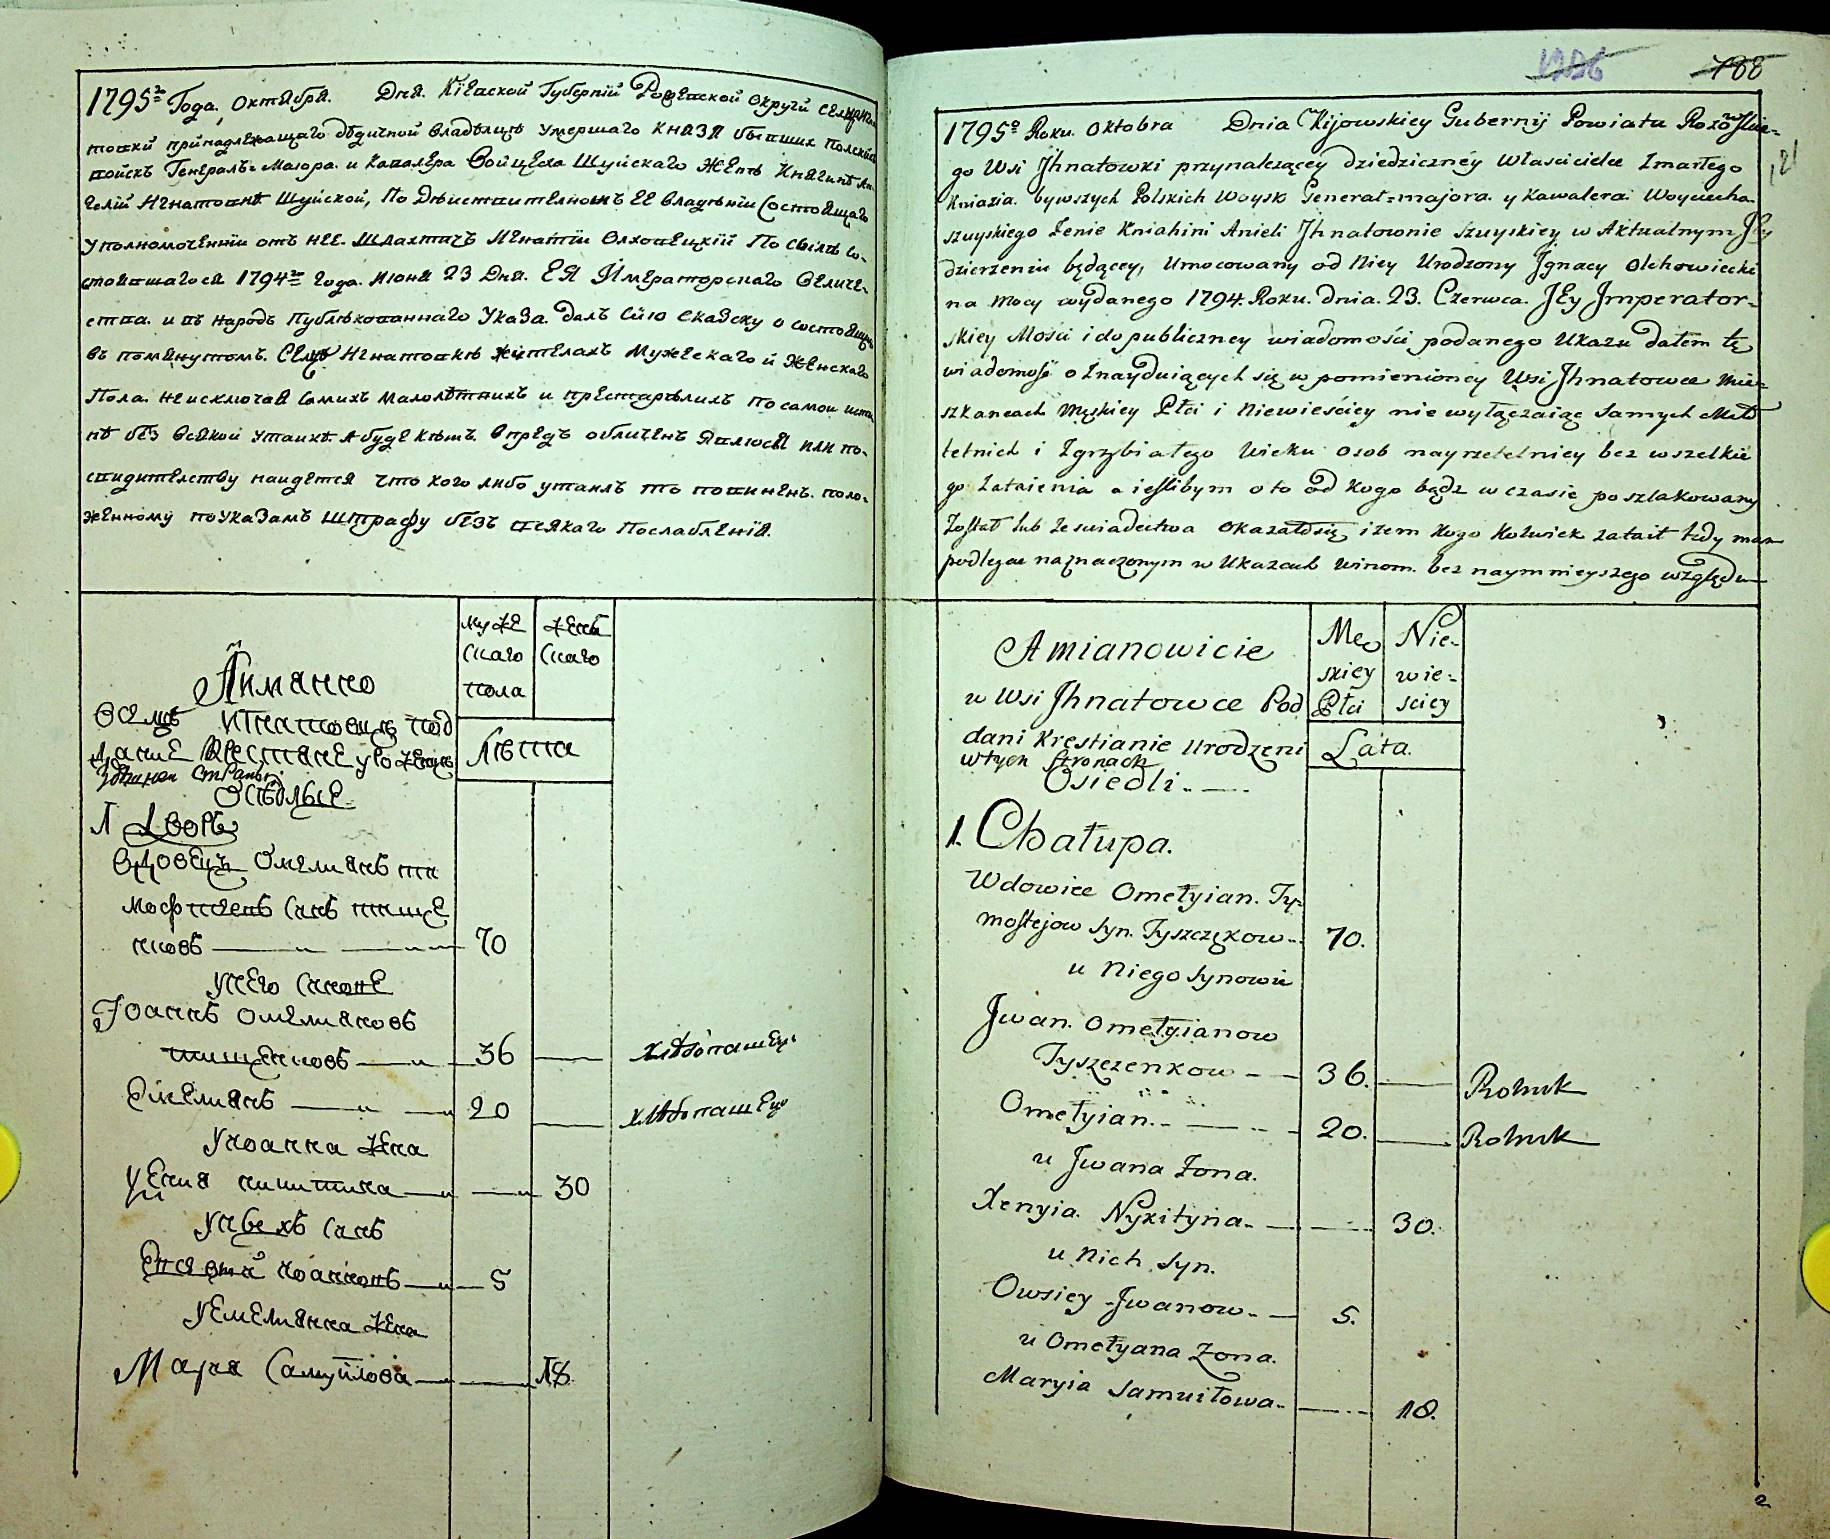 1795го Года, Октября. Дня. Кіевской Губерніи округи
товки принадлежащаго дѣдичной владѣлицѣ умершаго Князя бывших полских
войскъ Генералъ Маіора. и Кавалера Войцеха Шуйскаго Женѣ Княгинѣ Ан-
гелій Игнатовнѣ Шуйской, По Дѣиствителномъ Ее владѣніи Состоящаго
уполномоченніи отъ нее. Шлахтичъ Игнатіи Олховецкіи По силѣ со-
стоявшагося 1794го года. Июня 23 Дня. ЕЯ Императорскаго Величе-
ства. и въ народъ Публѣкованнаго Указа. далъ Сію сказку о состоящих
въ помянутомъ. Селѣ Игнатовкѣ жителахъ Мужескаго и Женскаго
Пола. неисключая самихъ малолѣтнихъ и престарѣлихъ по самои исти-
нѣ без всякои утаики. А буде кѣмъ. впредъ обличенъ явлюсь или по-
свидителству наидется что кого либо утаилъ то повиненъ. поло-
женному поУказамъ Штрафу безъ всякаго Послабленія.
муже
скаго
пола
женъ
скаго
Лѣта
Селѣ Игнатовцѣ под
дание крестяне уроженцѣ
здѣшнеи страны
Осѣдлые
1 Дворъ
Вдовецъ Омелианъ ти
мофтеевъ синъ тище
нковъ 70
унего синове
Іоаннъ омеляновъ
тищенковъ 36 хлѣбопашецъ
Омелянъ 20 хлѣбопашецъ
уиоанна жена
ксения никитина 30
унихъ синъ
Овсей иоанновъ 5
уемеляна жена
Мария Самуйлова 18
188
1795o Roku. Oktobra Dnia Kijowskiey Gubernij Powiatu
go Wsi Jhnatowki przynalezącey dziedziczney Własciciélce Zmarłego
Kniazia. bywszych Polskich Woysk Generał=majora. y Kawalera. Woyciecha
Szuyskiego Żenie Kniahini Anieli Jhnatownie Szuyskiey w Aktualnym Jey
dzierzeniu będącey, Umocowany od Niey Urodzony Jgnacy Olchowiecki
na Mocy wydanego 1794. Roku. dnia. 23. Czerwca. JEy Jmperator-
skiey Mości i do publiczney wiadomości podanego Ukazu dałem tę
wiadomość o Znayduiących się w pomienioney Wsi Jhnatowce Mie-
szkancach Męskiey Płci i Niewieściey nie wyłączaiąc Samych Mało
letnich i Zgrzybiałego Wieku Osob nayrzetelniey bez wszelkie
go Zataienia a iesłibym o to od Kogo bądz w czasie poszlakowany
Został lub Ze swiadectwa okazałosię, iżem Kogo Kolwiek zataił tedy mam
podlegac naznaczonym w Ukazach winom. bez naymnieyszego względu
Amianowicie
w Wsi Jhnatowce Pod
dani Krestianie Urodzeni
wtych Stronach
Osiedli.
Mę
skiey
Płci
Nie-
wie-
sciey
Lata.
1. Chałupa.
Wdowiec Omełyian. Ty-
moftejow Syn. Tyszczękow 70.
u Niego Synowie
Jwan. Omełyianow
Tyszczenkow 36. Rolnik
Omełyian. 20. Rolnik
u Jwana Zona.
Xenyia. Nykityna. 30.
u Nich Syn.
Owsiey Jwanow. 5.
u Omełyana Zona.
Maryia Samuiłowa. 18.
2